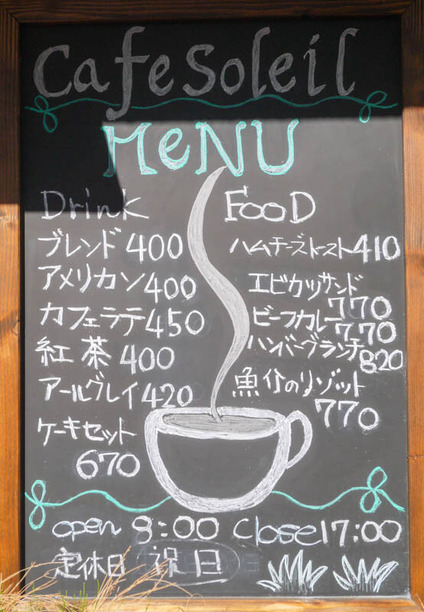 Cafe Soleil
MeNU
Drink
ブレンド 400
アメリカン 400
カフェラテ 450
紅茶 400
アールグレイ 420
ケーキセット
670
FooD
ハムチーズトースト 410
エビカツサンド
770
ビーフカレー 770
ハンバーグランチ
820
魚介のリゾット
770
open 8:00 close 17:00
定休日 祝日